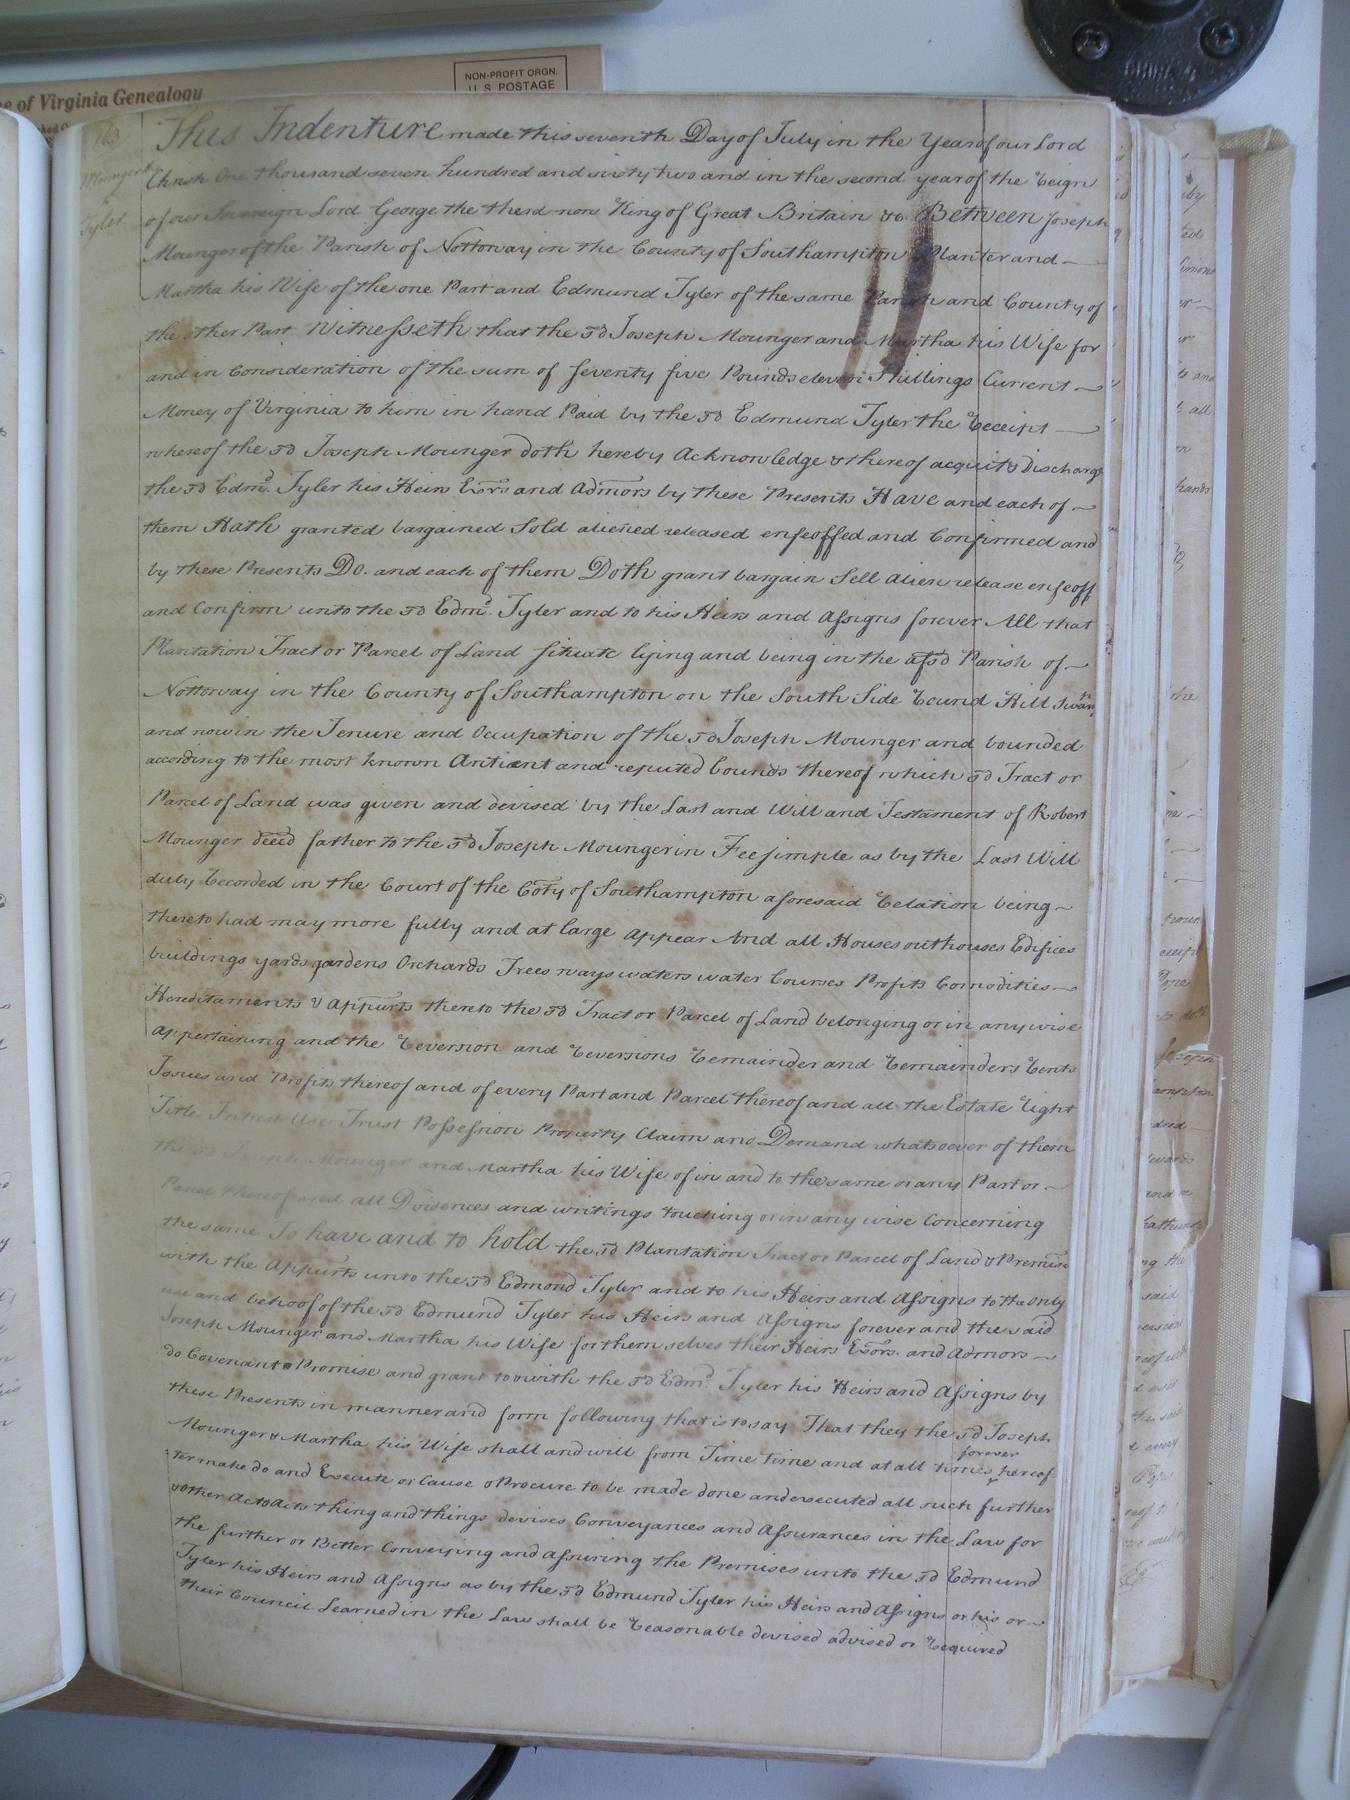 e of Virginia Genealogy
NON-PROFIT ORGN.
U. S. POSTAGE
163
Mounger
to
Tyler
This Indenture made this seventh Day of July in the Year of our Lord
Christ One thousand seven hundred and sixty two and in the second year of the Reign
of our Sovereign Lord George the therd now King of Great Britain &c Between Joseph
Mounger of the Parish of Nottoway in the County of Southampton Planter and
Martha his Wife of the one Part and Edmund Tyler of the same Parish and County of
the other Part Witnesseth that the sd Joseph Mounger and Martha his Wife for
and in Consideration of the sum of seventy five Pounds eleven Shillings Current
Money of Virginia to him in hand Paid by the sd Edmund Tyler the Receipt
whereof the sd Joseph Mounger doth hereby Acknowledge & thereof acquit & Discharge
the sd Edmd. Tyler his Heirs Exrs and Admors by these Presents Have and each of
them Hath granted bargained Sold aliened released enfeoffed and Confirmed and
by these Presents Do. and each of them Doth grant bargain Sell Alien release enfeoff
and Confirm unto the sd Edmd. Tyler and to his Heirs and Assigns forever All that
Plantation Tract or Parcel of Land situate lying and being in the afsd Parish of
Nottoway in the County of Southampton on the South Side Round Hill Swam
and now in the Tenure and Occupation of the sd Joseph Mounger and bounded
according to the most known Antient and reputed bounds thereof which sd Tract or
Parcel of Land was given and devised by the Last and Will and Testament of Robert
Mounger deced father to the sd Joseph Mounger in Fee simple as by the Last Will
duly Recorded in the Court of the Coty of Southampton aforesaid Relation being
thereto had may more fully and at large Appear And all Houses outhouses Edifices
buildings yards gardens Orchards Trees ways waters water Courses Profits Comodities
Hereditaments & Appurts thereto the sd Tract or Parcel of Land belonging or in any wise
Appertaining and the Reversion and Reversions Remainder and Remainders Rents
Issues and Profits thereof and of every Part and Parcel thereof and all the Estate Right
Title Intrest Use Trust Possession Property Claim and Demand whatsoever of them
the sd Joseph Mounger and Martha his Wife of in and to the same or any Part or
Parcel thereof and all Dvisences and writings touching or in any wise Concerning
the same To have and to hold the sd Plantation Tract or Parcel of Land & Premises
with the Appurts unto the sd Edmond Tyler and to his Heirs and Assigns to the only
use and behoof of the sd Edmund Tyler his Heirs and Assigns forever and the said
Joseph Mounger and Martha his Wife for them selves their Heirs Exors. and Admors
do Covenant & Promise and grant to & with the sd Edmd. Tyler his Heirs and Assigns by
these Presents in manner and form following that is to say That they the sd Joseph
Mounger & Martha his Wife shall and will from Time time and at all times forever hereaf
ter make do and Execute or Cause & Procure to be made done and executed all such further
& other Act & Acts thing and things devises Conveyances and Assurances in the Law for
the further or Better Conveying and Assuring the Premises unto the sd Edmund
Tyler his Heirs and Assigns as by the sd Edmund Tyler his Heirs and Assigns or his or
their Council Learned in the Law shall be Reasonable devised advised or Required